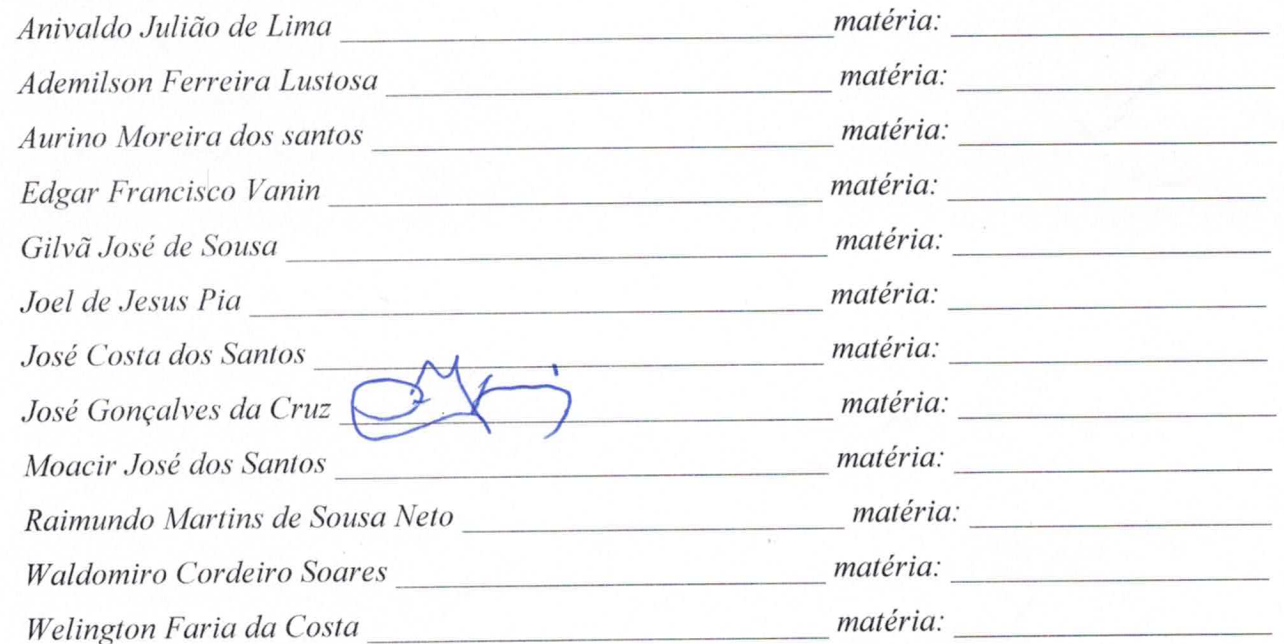 Anivaldo Julião de Lima _________________________ matéria: _________________
Ademilson Ferreira Lustosa _________________________ matéria: _________________
Aurino Moreira dos santos _________________________ matéria: _________________
Edgar Francisco Vanin _________________________ matéria: _________________
Gilvã José de Sousa _________________________ matéria: _________________
Joel de Jesus Pia _________________________ matéria: _________________
José Costa dos Santos _________________________ matéria: _________________
José Gonçalves da Cruz _________________________ matéria: _________________
Moacir José dos Santos _________________________ matéria: _________________
Raimundo Martins de Sousa Neto _________________________ matéria: _________________
Waldomiro Cordeiro Soares _________________________ matéria: _________________
Welington Faria da Costa _________________________ matéria: _________________